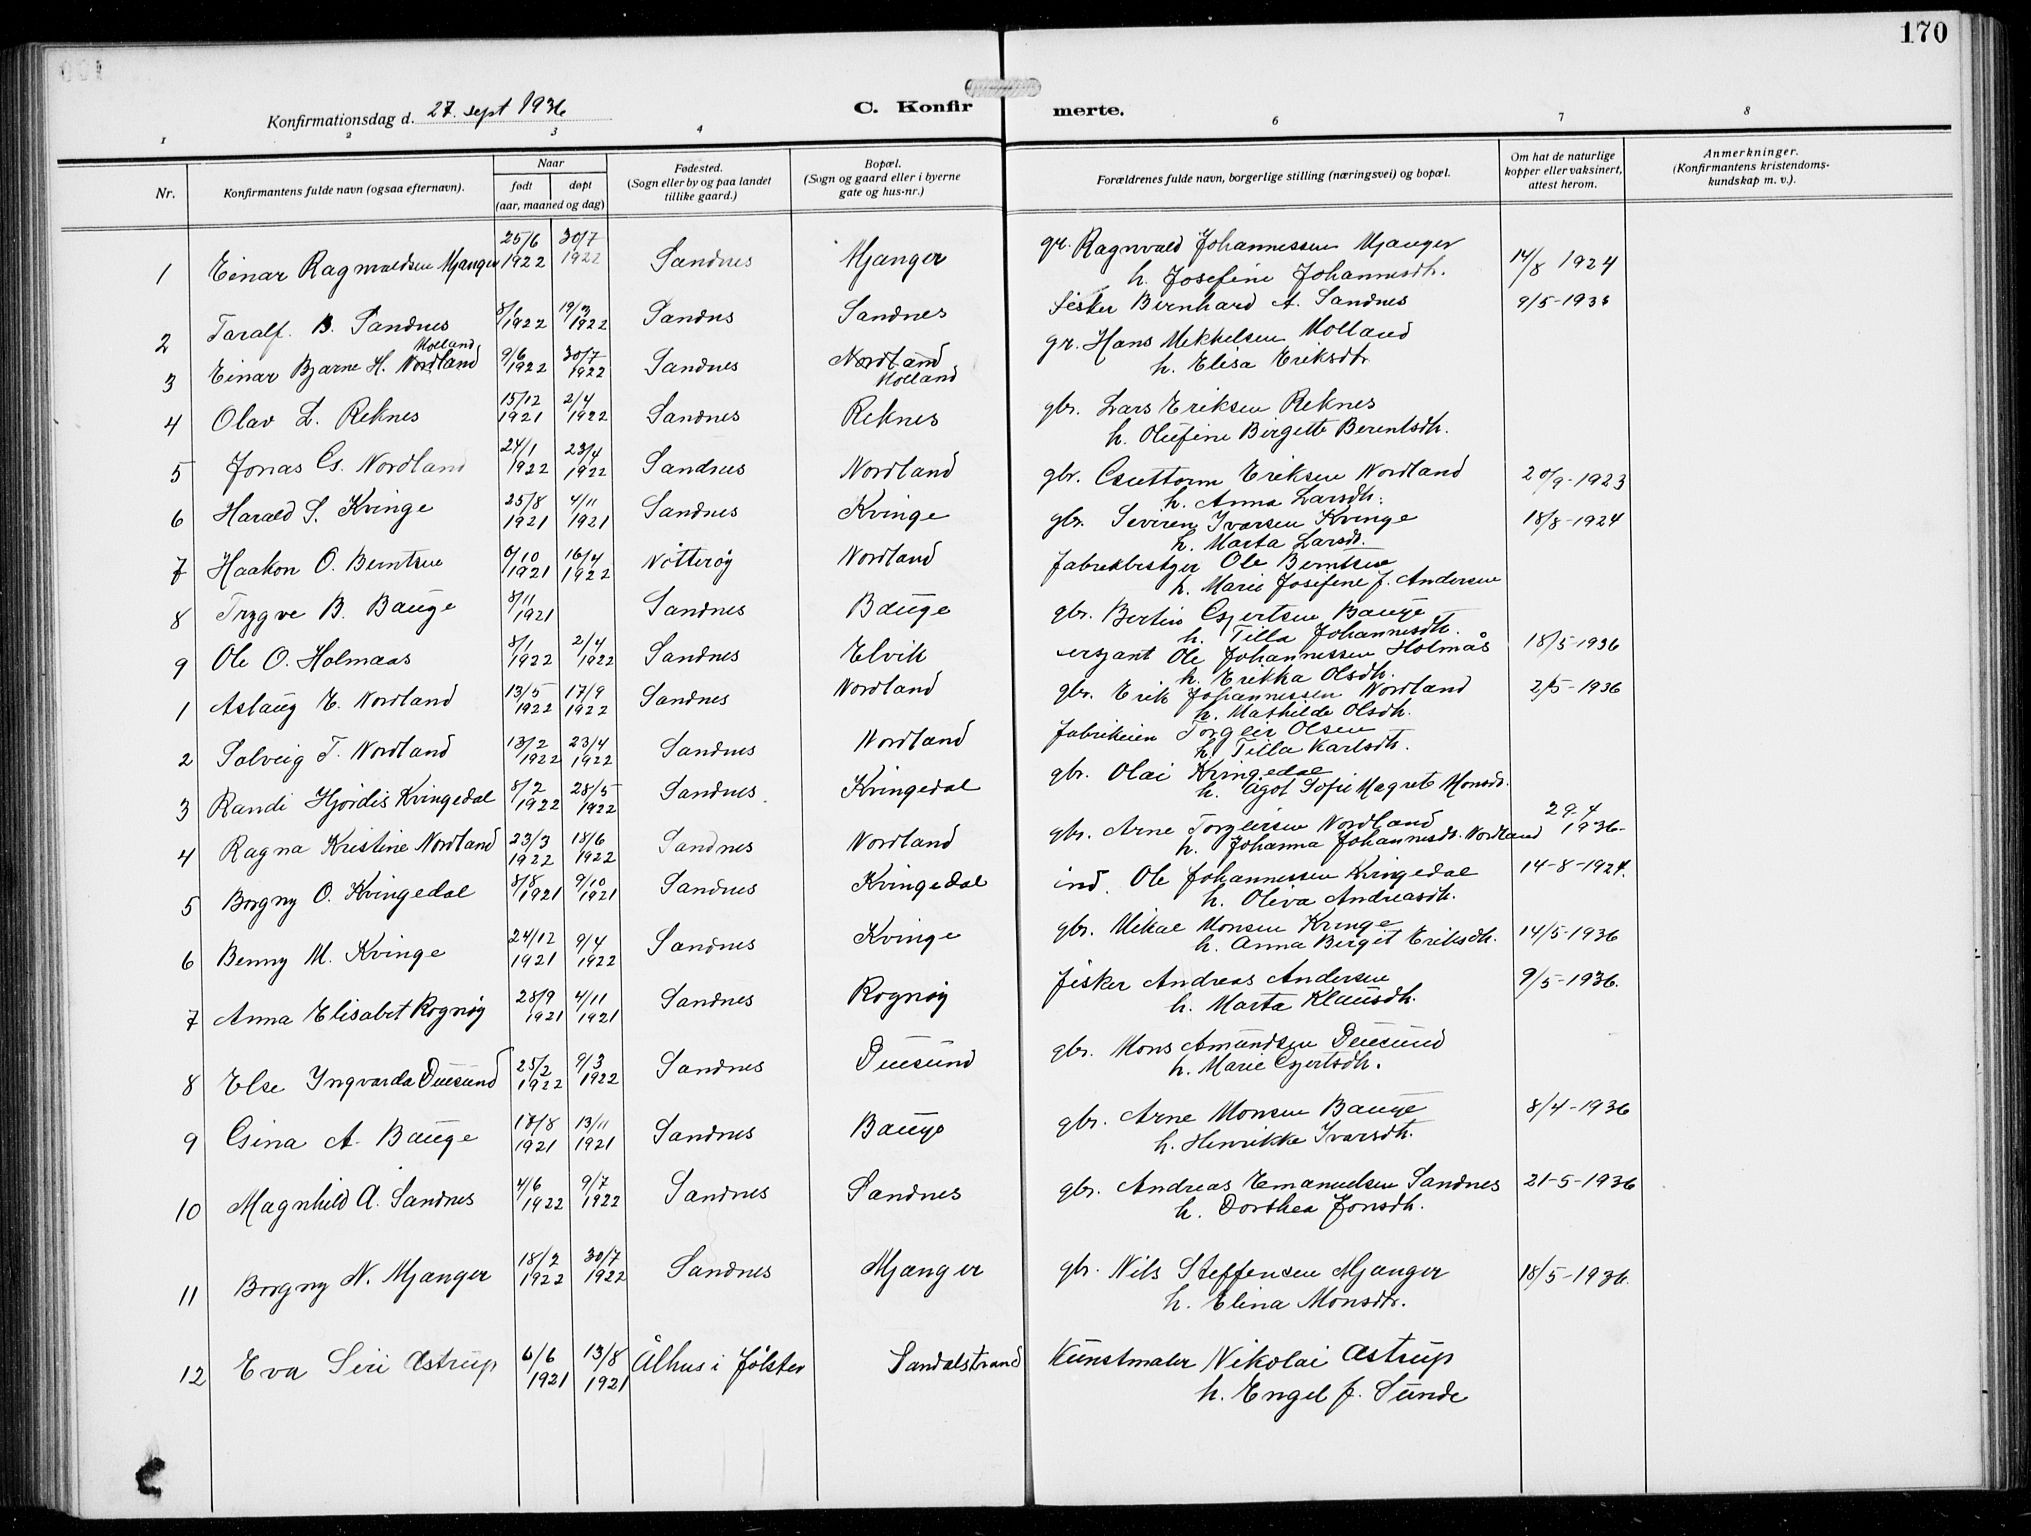 170
Konfirmationsdag d. 27. sept 1936
C. Konfirmerte.
1 2 3 4 6 7 8
Nr.
Konfirmantens fulde navn (ogsaa efternavn).
Naar
født døpt
(aar, maaned og dag)
Fødested.
(Sogn eller by og paa landet
tillike gaard.)
Bopæl.
(Sogn og gaard eller i byerne
gate og hus-nr.)
Forældrenes fulde navn, borgerlige stilling (næringsvei) og bopæl.
Om hat de naturlige
kopper eller vaksinert,
attest herom.
Anmerkninger.
(Konfirmantens kristendoms-
kundskap m. v.).
1 Einar Ragnvaldsen Mjanger 25/6 1922 30/7 1922 Sandnes Mjanger gr. Ragnvald Johannessen Mjanger 14/8 1924
h. Josefine Johannesdtr.
2 Taralf. B. Sandnes 8/1 1922 19/3 1922 Sandnes Sandnes fisker Bernhard A. Sandnes 9/5-1936
3 Einar Bjarne H. Nordland Molland 9/6 1922 30/7 1922 Sandnes Nordland Molland gr. Hans Mikkelsen Molland
h. Elisa Eriksdtr
4 Olav L. Reknes 15/12 1921 2/4 1922 Sandnes Reknes gbr. Lars Eriksen Reknes
h. Olufine Birgitte Berentsdtr.
5 Jonas G. Nordland 24/1 1922 23/4 1922 Sandnes Nordland gbr. Guttorm Eriksen Nordland 20/9-1923
h. Anna Larsdtr.
6 Harald S. Kvinge 25/8 1921 4/11 1921 Sandnes Kvinge gbr. Seviren Ivarsen Kvinge 18/8-1924
h. Marta Larsdt.
7 Haakon O. Berntsen 6/10 1921 16/4 1922 Nötteröy Nordland fabrikbestyer Ole Berntsen
h. Marie Josefine J. Andersen
8 Trygve B. Bauge 8/11 1921 Sandnes Bauge gbr. Bertin Gjertsen Bauge
h. Tilla Johannesdtr.
9 Ole O. Holmaas 8/1 1922 2/4 1922 Sandnes Elvik ersjant Ole Johannessen Holmås 18/5-1936
h. Erikka Olsdtr.
1 Aslaug E. Nordland 13/5 1922 17/9 1922 Sandnes Nordland gbr. Erik Johannessen Nordland 2/5-1936
h. Mathilde Olsdtr.
2 Solveig T. Nordland 13/2 1922 23/4 1922 Sandnes Nordland fabrikeier Torgeir Olsen
h. Tilla Karlsdtr.
3 Randi Hjördis Kvingedal 8/2 1922 28/5 1922 Sandnes Kvingedal gbr. Olai Kvingedal
h. Agot Sofie Magrete Monsdt.
4 Ragna Kristine Nordland 23/3 1922 18/6 1922 Sandnes Nordland gbr. Arne Torgeirsen Nordland 29.4 1936-
h. Johanna Johannesdt. Nordland
5 Borgny O. Kvingedal 8/8 1921 9/10 1921 Sandnes Kvingedal ind. Ole Johannessen Kvingedal 14-8-1924.
h. Oliva Andreasdtr.
6 Benny M. Kvinge 24/12 1921 9/4 1922 Sandnes Kvinge gbr. Mikal Monsen Kvinge 14/5-1936
h. Anna Birgit Eriksdtr.
7 Anna Elisabet Rognöy 28/9 1921 4/11 1921 Sandnes Rognöy fisker Andreas Andersen 9/5-1936.
h. Marta Klausdtr.
8 Else Yngvarda Duesund 25/2 1922 9/3 1922 Sandnes Duesund gbr. Mons Amundsen Duesund
h. Marie Gjertsdtr.
9 Gina A. Bauge 18/8 1921 13/11 1921 Sandnes Bauge gbr. Arne Monsen Bauge 8/4-1936
h. Henrikke Ivarsdtr.
10 Magnhild A. Sandnes 4/6 1922 9/7 1922 Sandnes Sandnes gbr. Andreas Emanuelsen Sandnes 21-5-1936
h. Dorthea Jonsdtr.
11 Borgny N. Mjanger 18/2 1922 30/7 1922 Sandnes Mjanger gbr. Nils Steffensen Mjanger 18/5-1936.
h. Elina Monsdtr.
12 Eva Siri Astrup 6/6 1921 13/8 1921 Ålhus i Jölster Sandalstrand Kunstmaler Nikolai Astrup
h. Engel f. Sunde